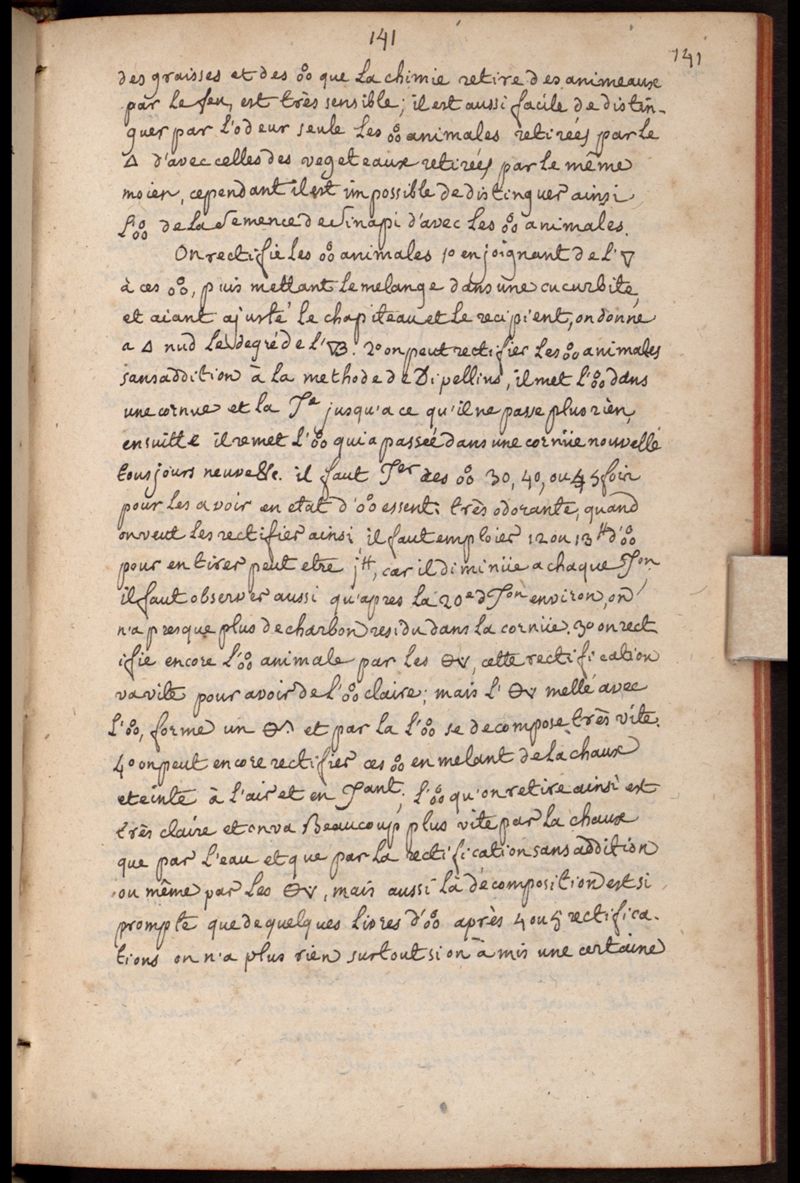 141
141
des graisses et des 🝆 que la chimie retire des animeaux
par le feu, est très sensible; il est aussi facile de distin-
guer par l'odeur seule les 🝆 animales retirées par le
🜂 d'avec celles des vegeteaux retirées par le même
moien, cependant il est impossible de distinguer ainsi
L'🝆 de la semence de Sinapi d'avec les 🝆 animales.
On rectifie les 🝆 animales 1º en joignant de l'🜄
à ces 🝆, puis mettant le melange dans une cucurbite,
et aiant ajusté le chapiteau et le recipient, on donne
a 🜂 nud le degré de l'🜄B. 2º on peut rectifier les 🝆 animales
sans addition à la methode de Dipellius, il met l'🝆 dans
une cornue et la Te jusqu'a ce qu'il ne passe plus rien,
ensuitte il remet l'🝆 qui a passée dans une cornüe nouvelle
tousjours neuvelle. il faut Ter des 🝆 30, 40, ou 45 fois
pour les avoir en etat d'🝆 essent: très odorante, quand
on veut les rectifier ainsi, il faut emploier 12 ou 13 ℔ d'🝆
pour en tirer peut etre j℔, car il diminüe a chaque Ton,
il faut observer aussi qu'apres la 20e dTon environ, on
n'a presque plus de charbon residu dans la cornüe. 3º on rect
ifie encore l'🝆 animale par les 🜔v, cette rectification
va vite pour avoir de l'🝆 claire; mais l' 🜔v mellé avec
L'🝆, forme un et par la l'🝆 se decompose très vite.
4º on peut encore rectifier ces 🝆 en melant de la chaux
eteinte à l'air et en Tant; l'🝆 qu'on retire ainsi est
très claire et on va Beaucoup plus vite par la chaux
que par l'eau et que par la rectification sans addition
ou même par les 🜔v, mais aussi la décomposition est si
prompte que de quelques livres d'🝆 après 4 ou 5 rectifica-
tions on n'a plus rien surtout si on à mis une certaine